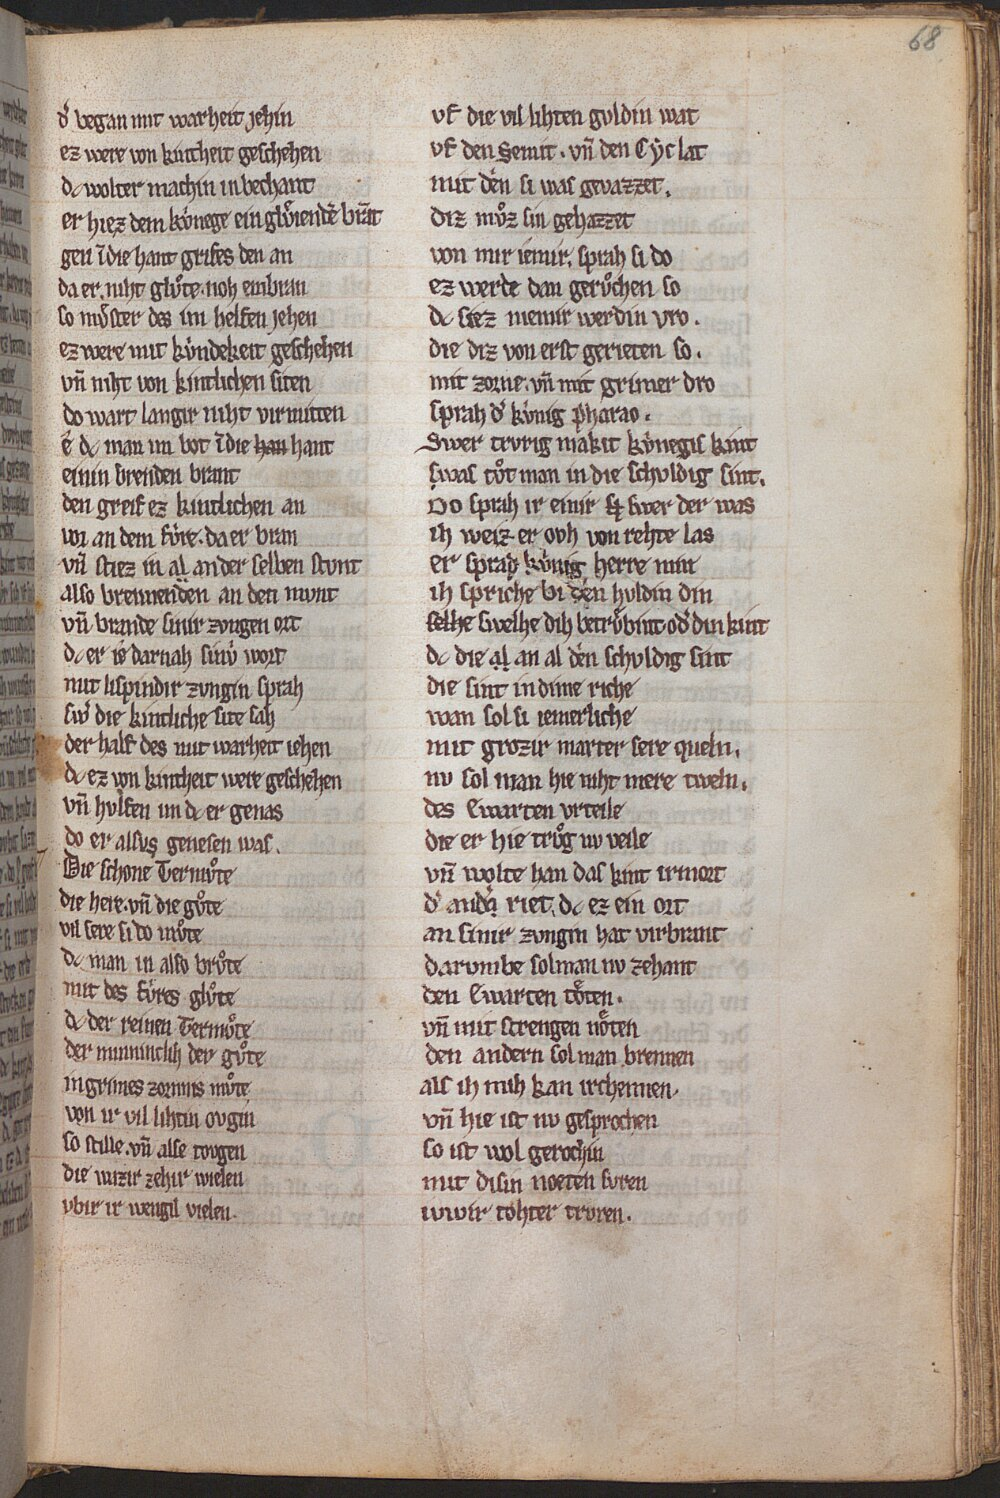 68
d̓ began mit warheit jehin
ez were von kintheit geschehen
dc wolter machin in bechant
er hiez dem kv́nege ein glv́iendē brāt
gen ī die hant grifes den an
da er. niht glv̊te. noh enbran
so mv̊ster des im helfen jehen
ez were mit kv́ndekeit geschehen
vn̄ niht von kintlichen siten
do wart langir niht virmitten
é dc man im bot ī die han hant
einin brenden brant
den greif ez kintlichen an
wi an dem fv́re. da er bran
vn̄ stiez in al an der selben stvnt
also brennenden an den mvnt
vn̄ brande sinir zvngen ort
dc er ie darnah sinv́ wort
mit lispindir zvngin sprah
sw̓ die kintliche site sah
der half des mit warheit iehen
dc ez von kintheit were geschehen
vn̄ hvlfen im dc er genas
do er alsvs genesen was.
Die schone Termv̊te
die here. vn̄ die gv̊te
vil sere si do mv̊te
dc man in also brv̊te
mit des fv́res glv̊te
dc der reinen Termv̊te
der minniclih der gv̊te
in grimes zornis mv̊te
von ir vil lihtin ovgin
so stille. vn̄ alse tovgen
die wizir zehir wielen
vbir ir wengil vielen.
vf die vil lihten gvldin wat
vf den Semit. vn̄ den Cyclat
mit dén si was gevazzet.
diz mv̊z sin gehazzet
von mir iemir. sprah si do
ez werde dan gerv̊chen so
dc siez niemir werdin vro.
die diz von erst gerieten so.
mit zorne. vn̄ mit grimer dro
sprah d̓ kv́nig pharao.
Swer trvrig makit kv́negis kint
swas tv̊t man in die schvldig sint.
Do sprah ir einir swer der was
ih weiz er ovh von rehte las
er sprah kv́nig herre min
ih spriche bi dén hvldin din
selhe swelhe dih betrv̊bint od̓ din kint
dc die al an al dén schvldig sint
die sint in dime riche
wan sol si iemerliche
mit grozir marter sere queln.
nv sol man hie niht mere tweln.
des Ewarten vrteile
die er hie trv̊g nv veile
vn̄ wolte han das kint irmort
d̓ andir riet. dc ez ein ort
an sinir zvngin hat virbrant
darvmbe sol man nv zehant
den Ewarten tö́ten.
vn̄ mit strengen nö́ten
den andern sol man brennen
als ih mih kan irchennen.
vn̄ hie ist nv gesprochen
so ist wol gerochin
mit disin noeten svren
iwir tohter trvren.